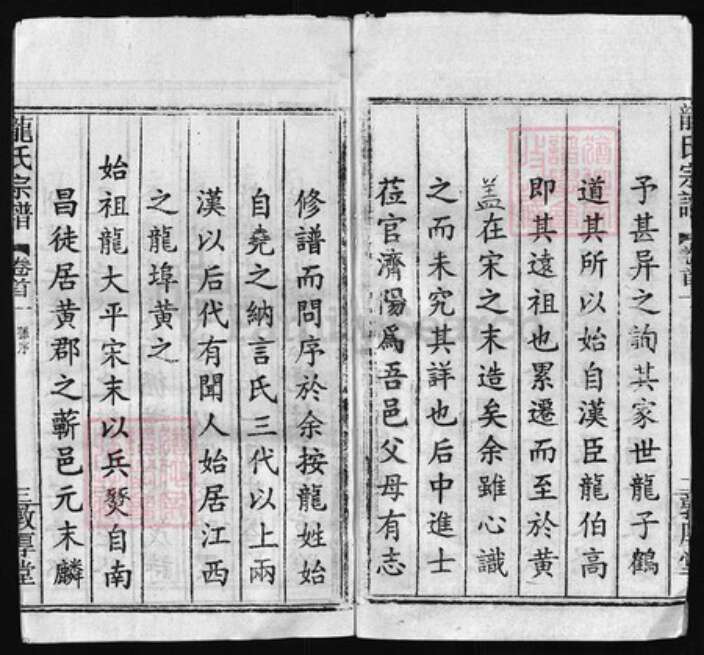 龍氏宗譜 卷首一
予甚异之詢其家世龍子鶴
道其所以始自漢臣龍伯高
即其遠祖也累遷而至於黄
盖在宋之末造矣余雖心識
之而未究其詳也后中進士
莅官濟陽為吾邑父母有志
修譜而問序於余按龍姓始
自堯之納言氏三代以上兩
漢以后代有聞人始居江西
之龍埠黄之
始祖龍大平宋末以兵燹自南
昌徒居黄郡之蘄邑元末麟
龍氏宗譜 卷首一 序 三 敦厚堂